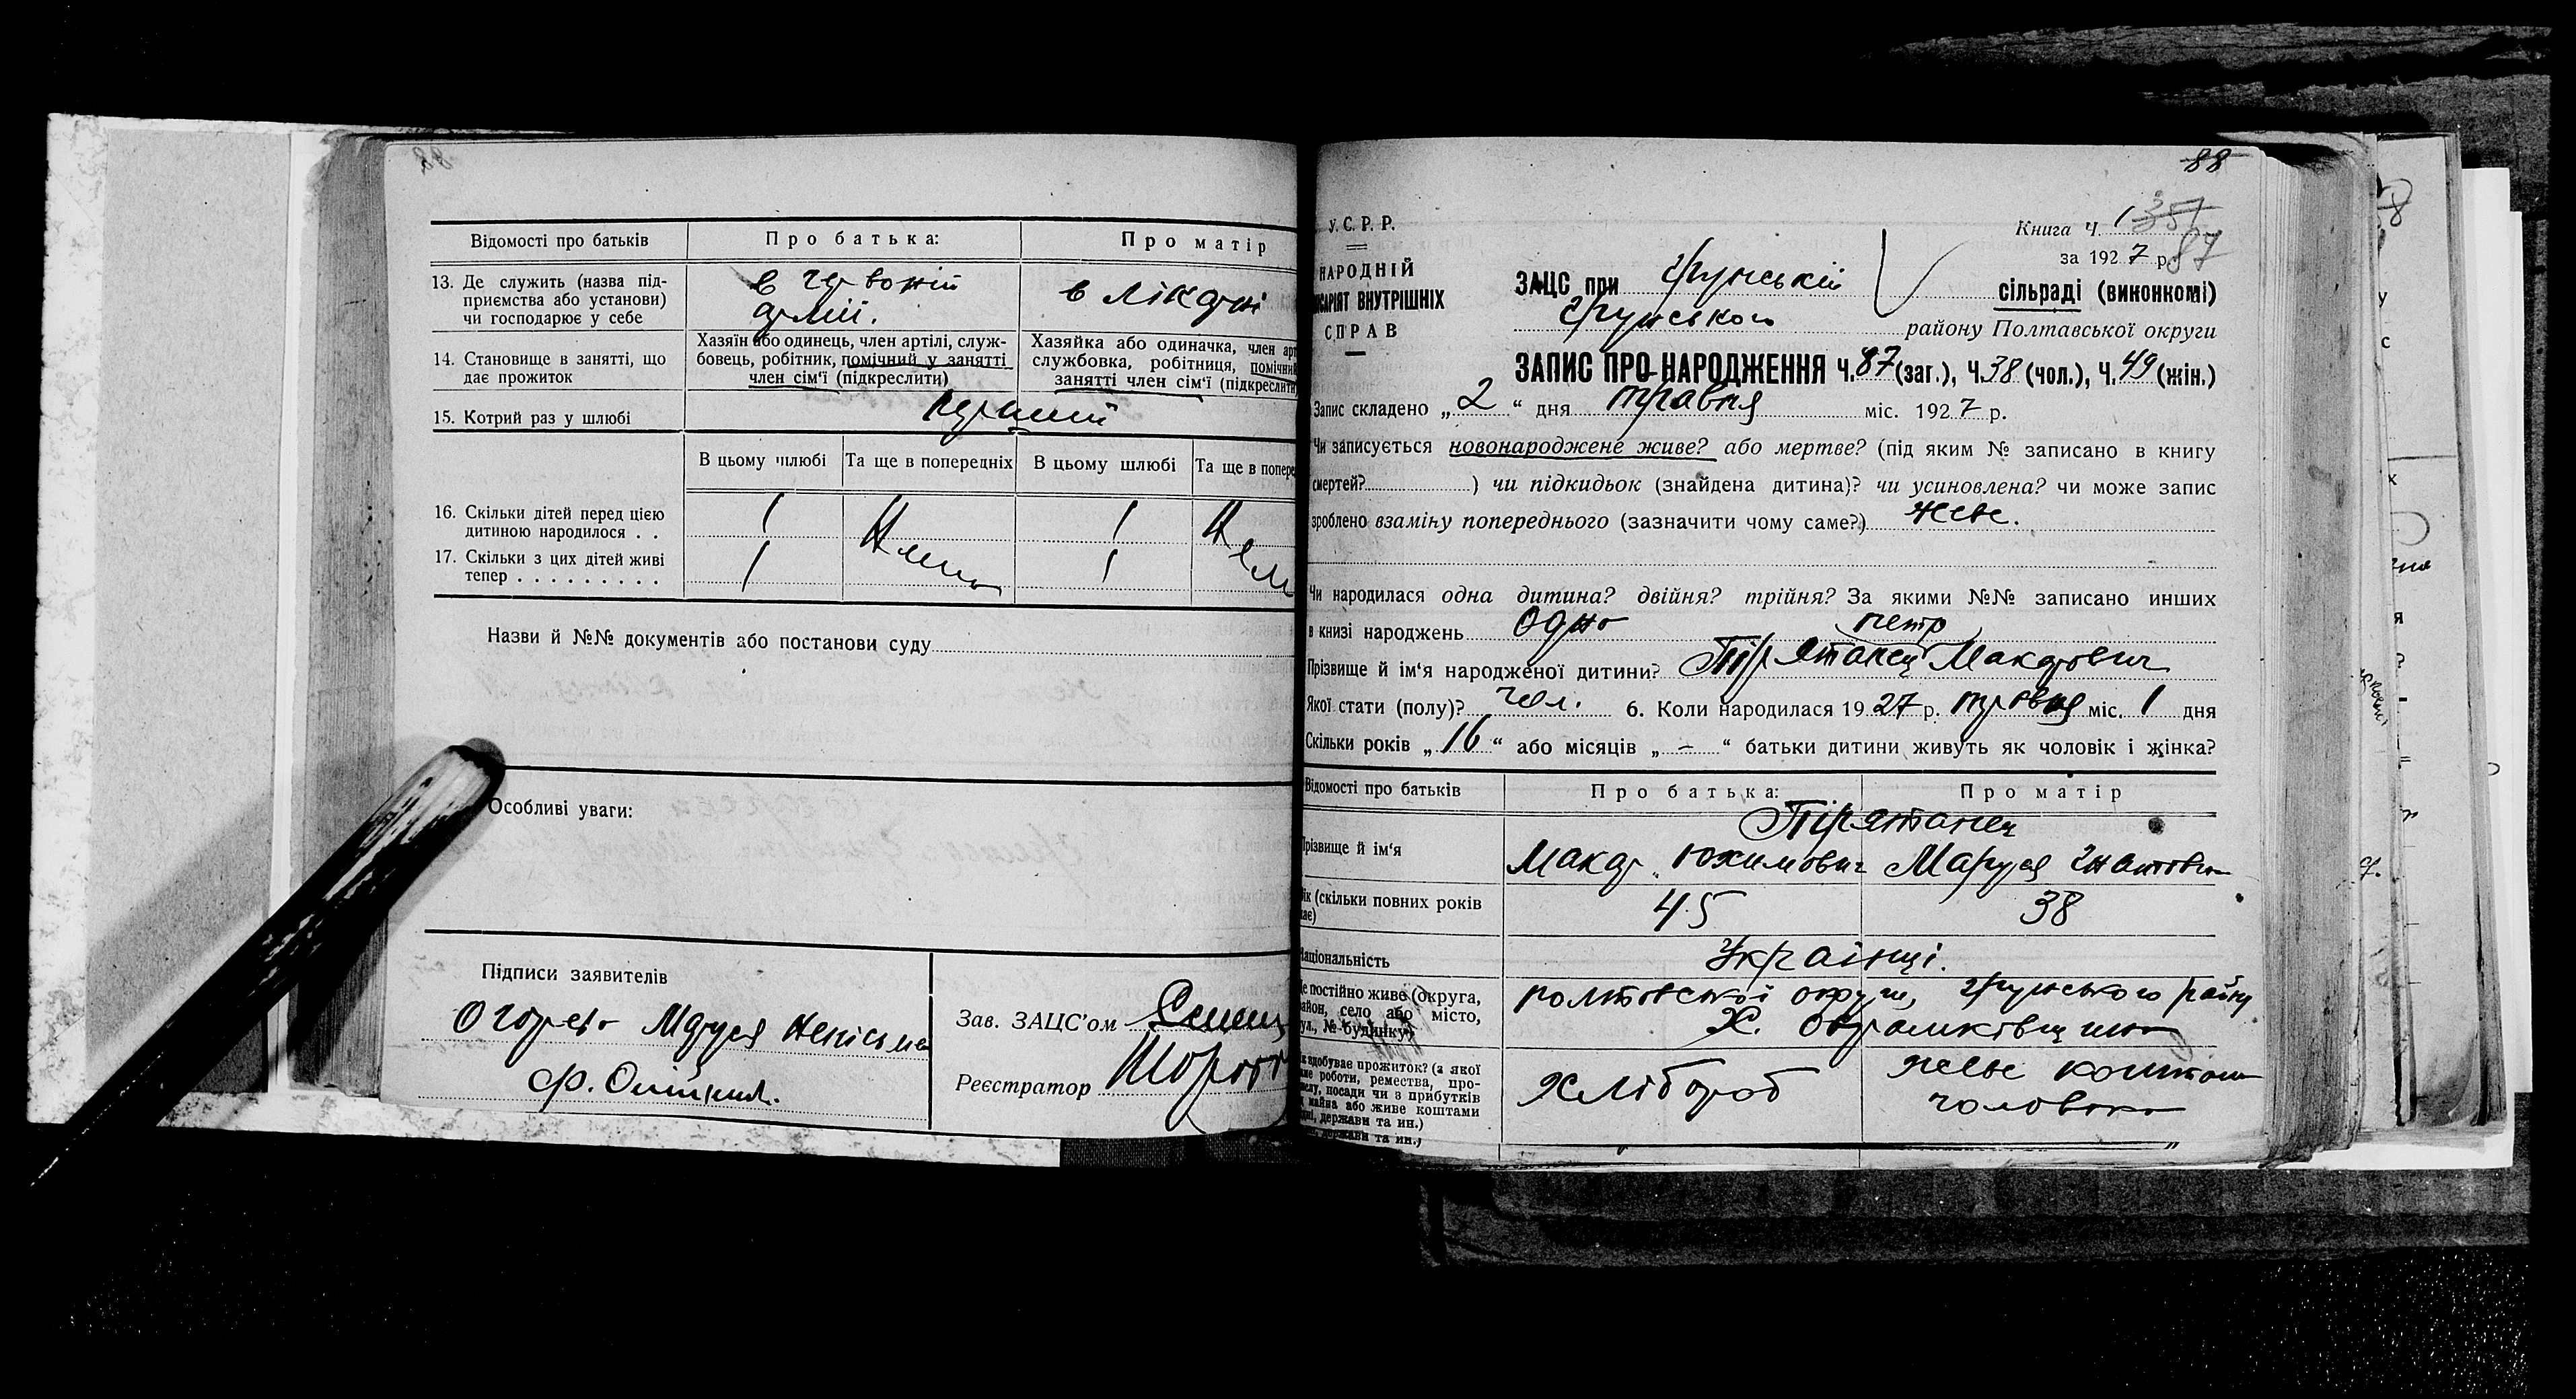 Відомості про батьків
Про батька:
Про матір
13. Де служить (назва під-
приємства або установи)
чи господарює у себе
в червоній
армії.
в лікарні
14. Становище в занятті, що
дає прожиток
Хазяїн або одинець, член артілі, служ-
бовець, робітник, помічний у занятті
член сім'ї (підкреслити)
Хазяйка або одиначка, член арт
службовка, робітниця, помічни
занятті член сім'ї (підкреслити
15. Котрий раз у шлюбі
перший
В цьому шлюбі
Та ще в попередніх
В цьому шлюбі
Та ще в попере
16. Скільки дітей перед цією
дитиною народилося . .
1
1
17. Скільки з цих дітей живі
тепер . . . . . . . . .
1
Нема
1
Нем
Назви й №№ документів або постанови суду
Особливі уваги:
Підписи заявителів
Маруся неписьмен
Зав. ЗАЦС'ом
Реєстратор
88
У.С.Р.Р.
НАРОДНІЙ
ІСАРІЯТ ВНУТРІШНІХ
СПРАВ
Книга Ч. 1 357
87
за 1927 р.
ЗАЦС при Грунській сільраді (виконкомі)
Грунського району Полтавської округи
ЗАПИС ПРО НАРОДЖЕННЯ Ч. 87 (заг.), Ч. 38 (чол.), Ч. 49 (жін.)
Запис складено „2" дня травня міс. 1927 р.
Чи записується новонароджене живе? або мертве? (під яким № записано в книгу
смертей?) чи підкидьок (знайдена дитина)? чи усиновлена? чи може запис
зроблено взаміну попереднього (зазначити чому саме?) живе.
Чи народилася одна дитина? двійня? трійня? За якими №№ записано инших
в книзі народжень Одно
петр
Прізвище й ім'я народженої дитини? Пірятанец Макарович
Якої стати (полу)? чол. 6. Коли народилася 1927 р. травня міс. 1 дня
Скільки років „16" або місяців „–" батьки дитини живуть як чоловік і жінка?
Відомості про батьків
Про батька:
Про матір
Прізвище й ім'я
Пірятанец
Макар Юхимович
Маруся Гнатовна
ік (скільки повних років
ає)
45
38
Національність
Українці.
е постійно живе (округа,
район, село або місто,
ул., № будинку)
полтавської округи, Грунського району
Х.
к здобуває прожиток? (з якої
ме роботи, ремества, про-
слу, посади чи з прибутків
майна або живе коштами
дні, держави та ин.)
держави та ин.)
Хлібороб
живе коштом
чоловіка